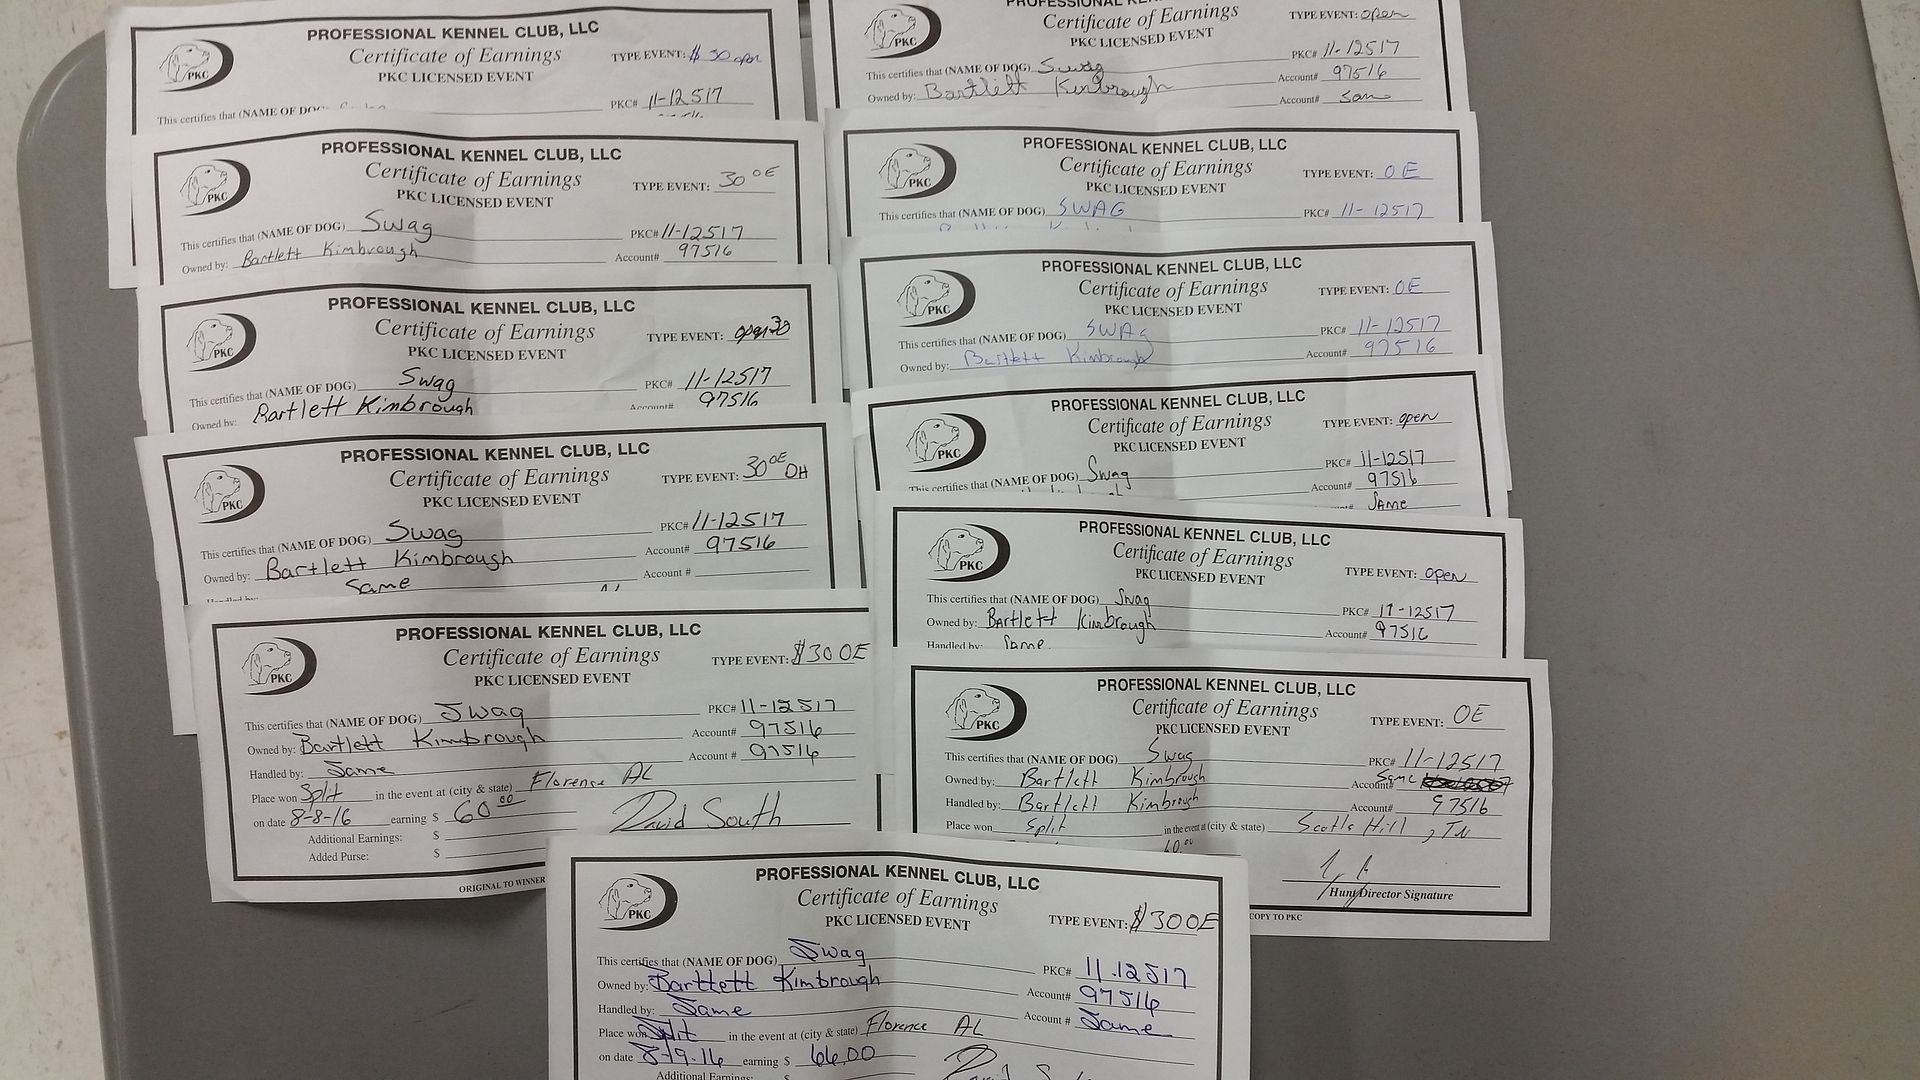 PROFESSIONAL KENNEL CLUB, LLC
Certificate of Earnings
TYPE EVENT: $ 30 open
PKC LICENSED EVENT
PKC
PKC# 11-12517
This certifies that (NAME OF DOG)
PROFESSIONAL KENNEL CLUB, LLC
Certificate of Earnings
TYPE EVENT: 30 OE
PKC LICENSED EVENT
PKC
This certifies that (NAME OF DOG) Swag PKC# 11-12517
Owned by: Bartlett Kimbrough Account# 97516
PROFESSIONAL KENNEL CLUB, LLC
Certificate of Earnings
TYPE EVENT: open 30
PKC LICENSED EVENT
PKC
This certifies that (NAME OF DOG) Swag PKC# 11-12517
Owned by: Bartlett Kimbrough Account# 97516
PROFESSIONAL KENNEL CLUB, LLC
Certificate of Earnings
TYPE EVENT: 30 OE DH
PKC LICENSED EVENT
PKC
This certifies that (NAME OF DOG) Swag PKC# 11-12517
Owned by: Bartlett Kimbrough Account# 97516
Same Account #
Handled by:
PROFESSIONAL KENNEL CLUB, LLC
Certificate of Earnings
TYPE EVENT: $30 OE
PKC LICENSED EVENT
PKC
This certifies that (NAME OF DOG) Swag PKC# 11-12517
Owned by: Bartlett Kimbrough Account# 97516
Handled by: Same Account # 97516
Place won Split in the event at (city & state) Florence AL
on date 8-8-16 earning $ 60.00 David South
Additional Earnings: $
Added Purse: $
ORIGINAL TO WINNER
PROFESSIONAL KENNEL
Certificate of Earnings
TYPE EVENT: open
PKC LICENSED EVENT
PKC
PKC# 11-12517
This certifies that (NAME OF DOG) Swag Account# 97516
Owned by: Bartlett Kimbrough Account# Same
PROFESSIONAL KENNEL CLUB, LLC
Certificate of Earnings
TYPE EVENT: OE
PKC LICENSED EVENT
PKC
This certifies that (NAME OF DOG) SWAG PKC# 11-12517
PROFESSIONAL KENNEL CLUB, LLC
Certificate of Earnings
TYPE EVENT: OE
PKC LICENSED EVENT
PKC
This certifies that (NAME OF DOG) SWAg PKC# 11-12517
Owned by: Bartlett Kimbrough Account# 97516
PROFESSIONAL KENNEL CLUB, LLC
Certificate of Earnings
TYPE EVENT: open
PKC LICENSED EVENT
PKC
PKC# 11-12517
This certifies that (NAME OF DOG) Swag Account# 97516
SAME
PROFESSIONAL KENNEL CLUB, LLC
Certificate of Earnings
TYPE EVENT: open
PKC LICENSED EVENT
PKC
This certifies that (NAME OF DOG) Swag PKC# 11-12517
Owned by: Bartlett Kimbrough Account# 97516
Handled by: SAME
PROFESSIONAL KENNEL CLUB, LLC
Certificate of Earnings
TYPE EVENT: OE
PKC LICENSED EVENT
PKC
This certifies that (NAME OF DOG) Swag PKC# 11-12517
Owned by: Bartlett Kimbrough Account# Same
Handled by: Bartlett Kimbrough Account# 97516
Place won Split in the event at (city & state) Scotts Hill, TN
60.00
Hunt Director Signature
COPY TO PKC
PROFESSIONAL KENNEL CLUB, LLC
Certificate of Earnings
TYPE EVENT: $30 OE
PKC LICENSED EVENT
PKC
This certifies that (NAME OF DOG) Swag PKC# 11-12517
Owned by: Bartlett Kimbrough Account# 97516
Handled by: Same Account # Same
Place won Split in the event at (city & state) Florence AL
on date 8-19-16 earning $ 66.00
Additional Earnings: $ David